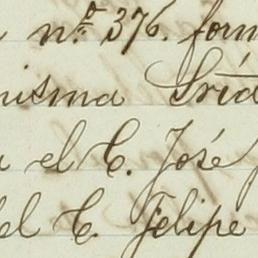 nº 376. form
misma Sría
el C. José
del C. Felipe